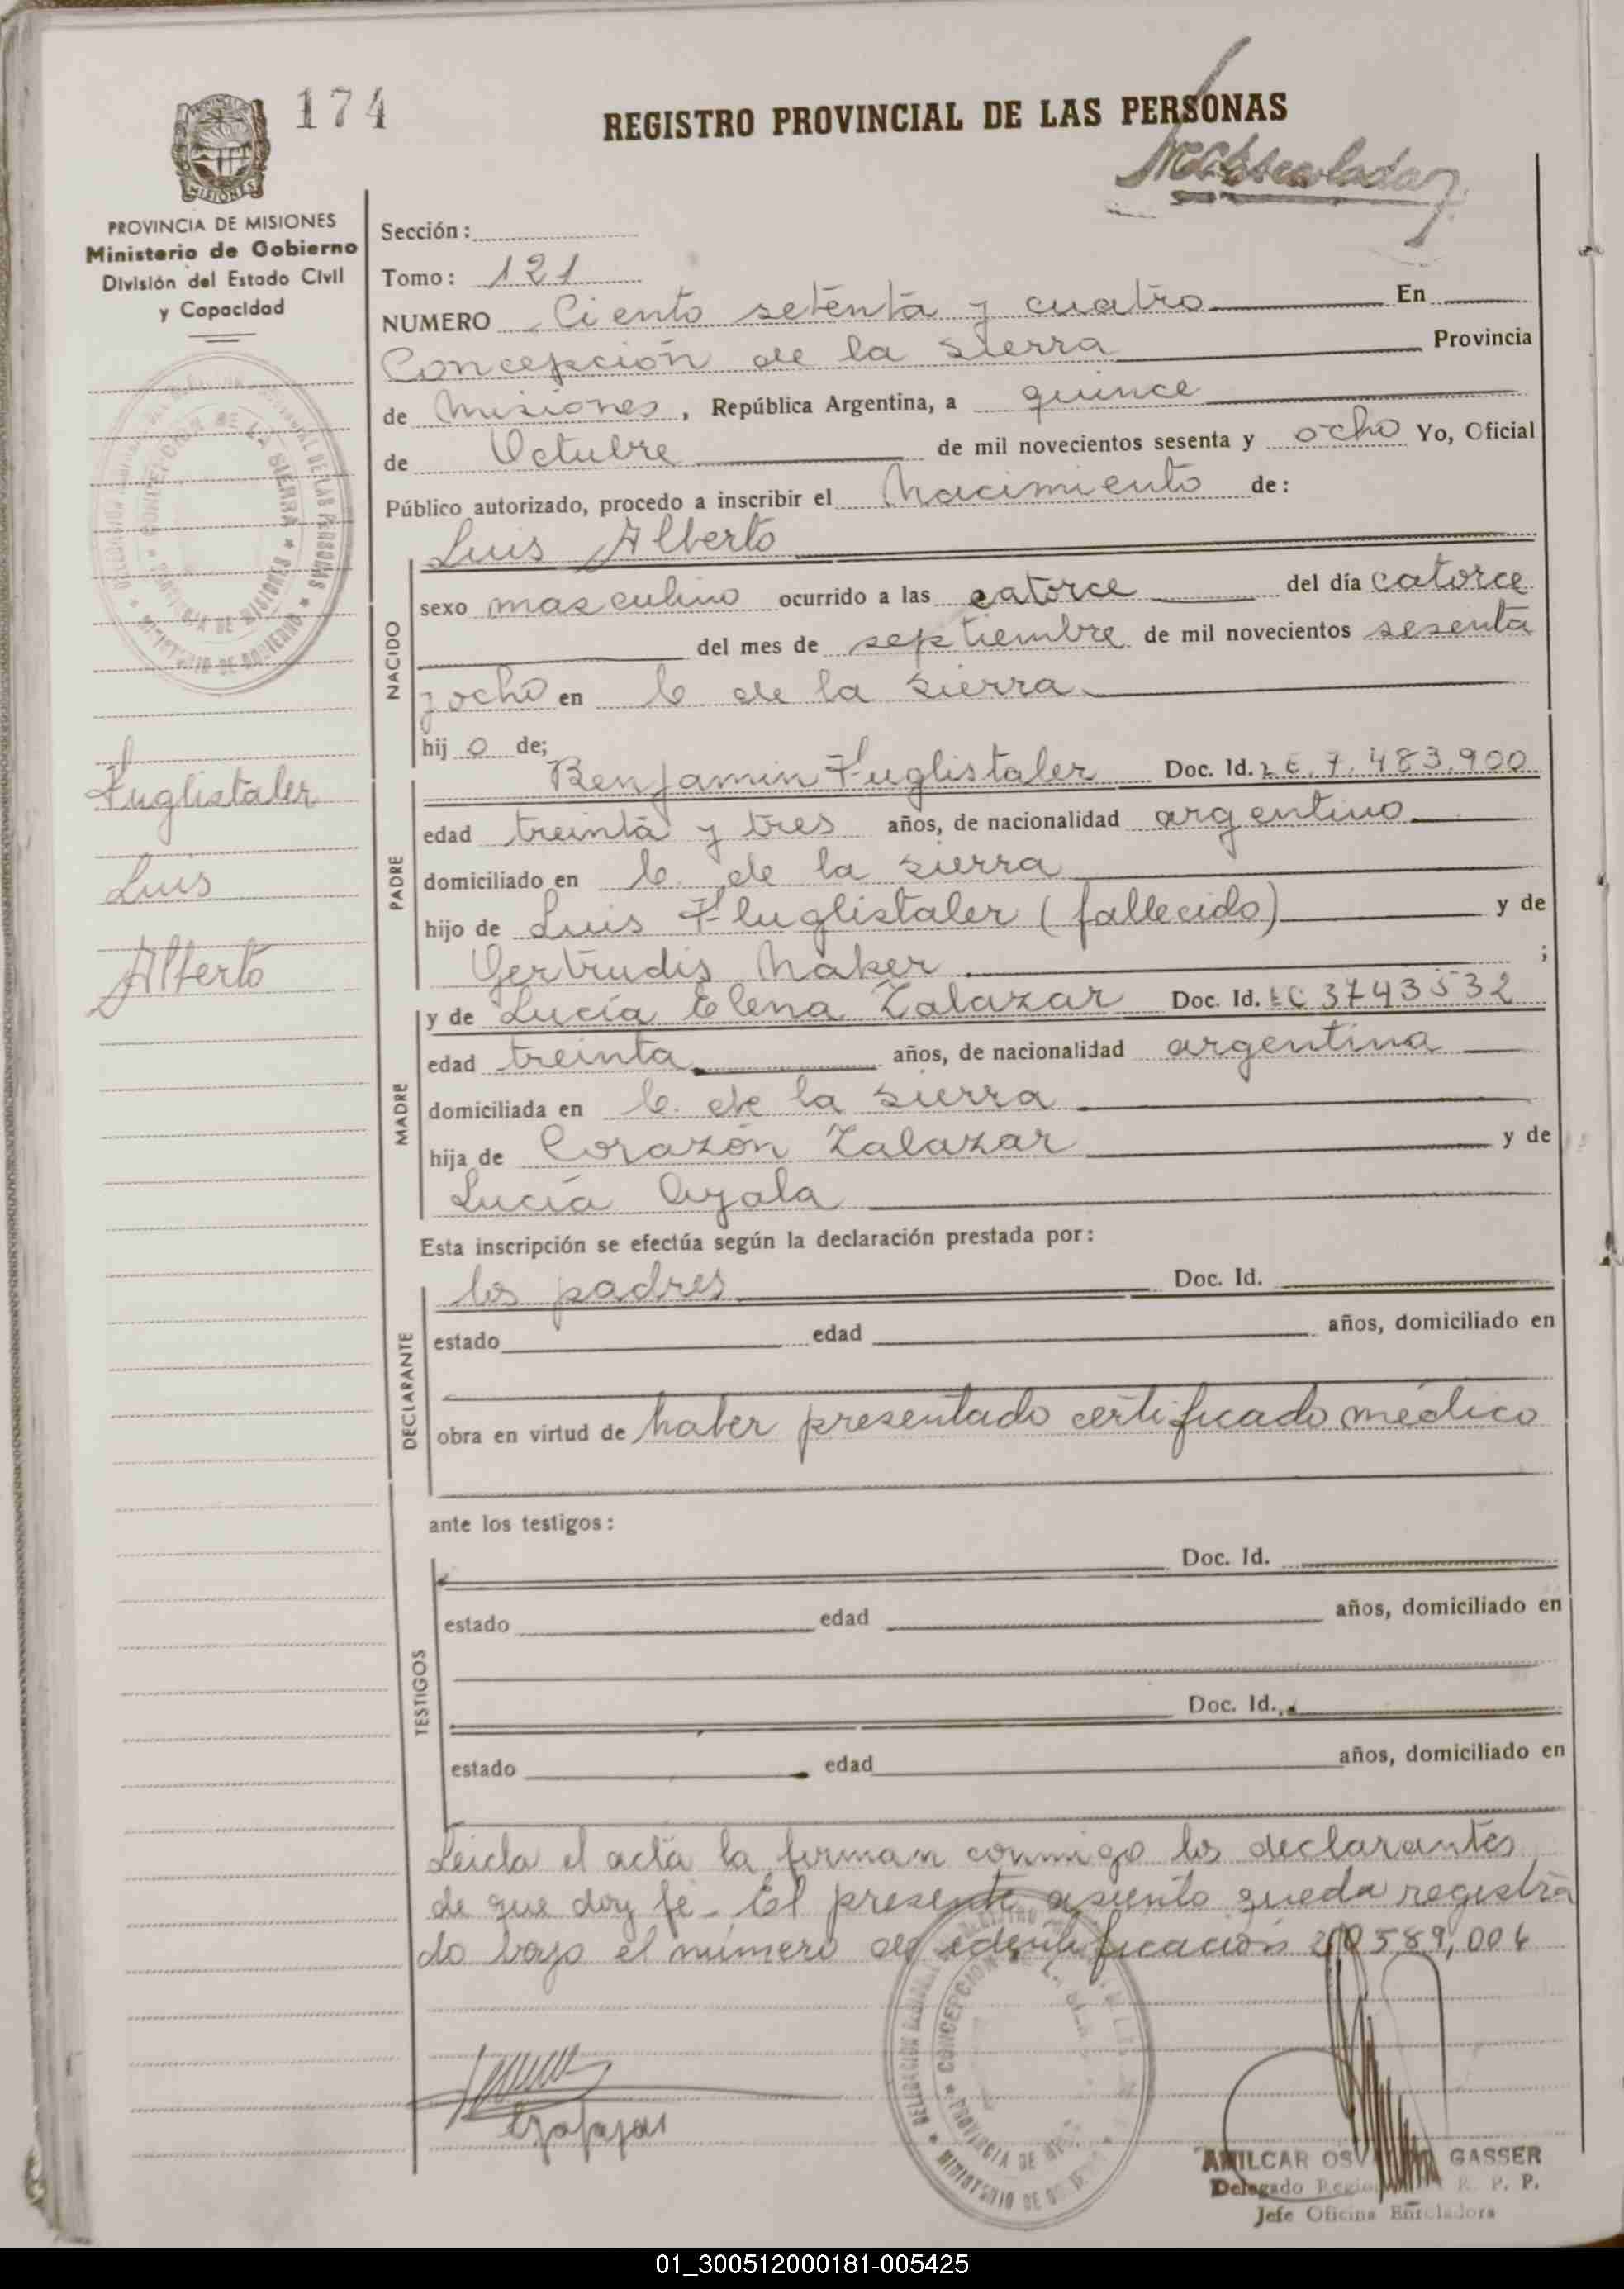 174
REGISTRO PROVINCIAL DE LAS PERSONAS
MISIONES
PROVINCIA DE MISIONES
Ministerio de Gobierno
División del Estado Civil
y Capacidad
Sección:
Tomo: 121
NUMERO Ciento setenta y cuatro En
Concepción de la Sierra Provincia
de Misiones, República Argentina, a quince
de Octubre de mil novecientos sesenta y ocho Yo, Oficial
Público autorizado, procedo a inscribir el Nacimiento de:
Luis Alberto
NACIDO
sexo masculino ocurrido a las catorce del día catorce
del mes de septiembre de mil novecientos sesenta
y ocho en C de la Sierra
hij o de;
Fuglistaler
Luis
Alberto
PADRE
Benjamin Fuglistaler Doc. Id. L E. 7.483.900
edad treinta y tres años, de nacionalidad argentino
domiciliado en C. de la Sierra
hijo de Luis Fluglistaler (fallecido) y de
Gertrudis Naker ;
MADRE
y de Lucía Elena Zalazar Doc. Id. LC 3743532
edad treinta años, de nacionalidad argentina
domiciliada en C. de la Sierra
hija de Corazón Zalazar y de
Lucía Ayala
Esta inscripción se efectúa según la declaración prestada por:
DECLARANTE
los padres Doc. Id.
estado edad años, domiciliado en
obra en virtud de haber presentado certificado médico
ante los testigos:
TESTIGOS
Doc. Id.
estado edad años, domiciliado en
Doc. Id.
estado edad años, domiciliado en
Leida el acta la firman conmigo los declarantes
de que doy fe - El presente asiento queda registra
do bajo el número de identificación 20589,004
AMILCAR GASSER
Delegado R. P. P.
Jefe Oficina Enroladora
01_300512000181-005425